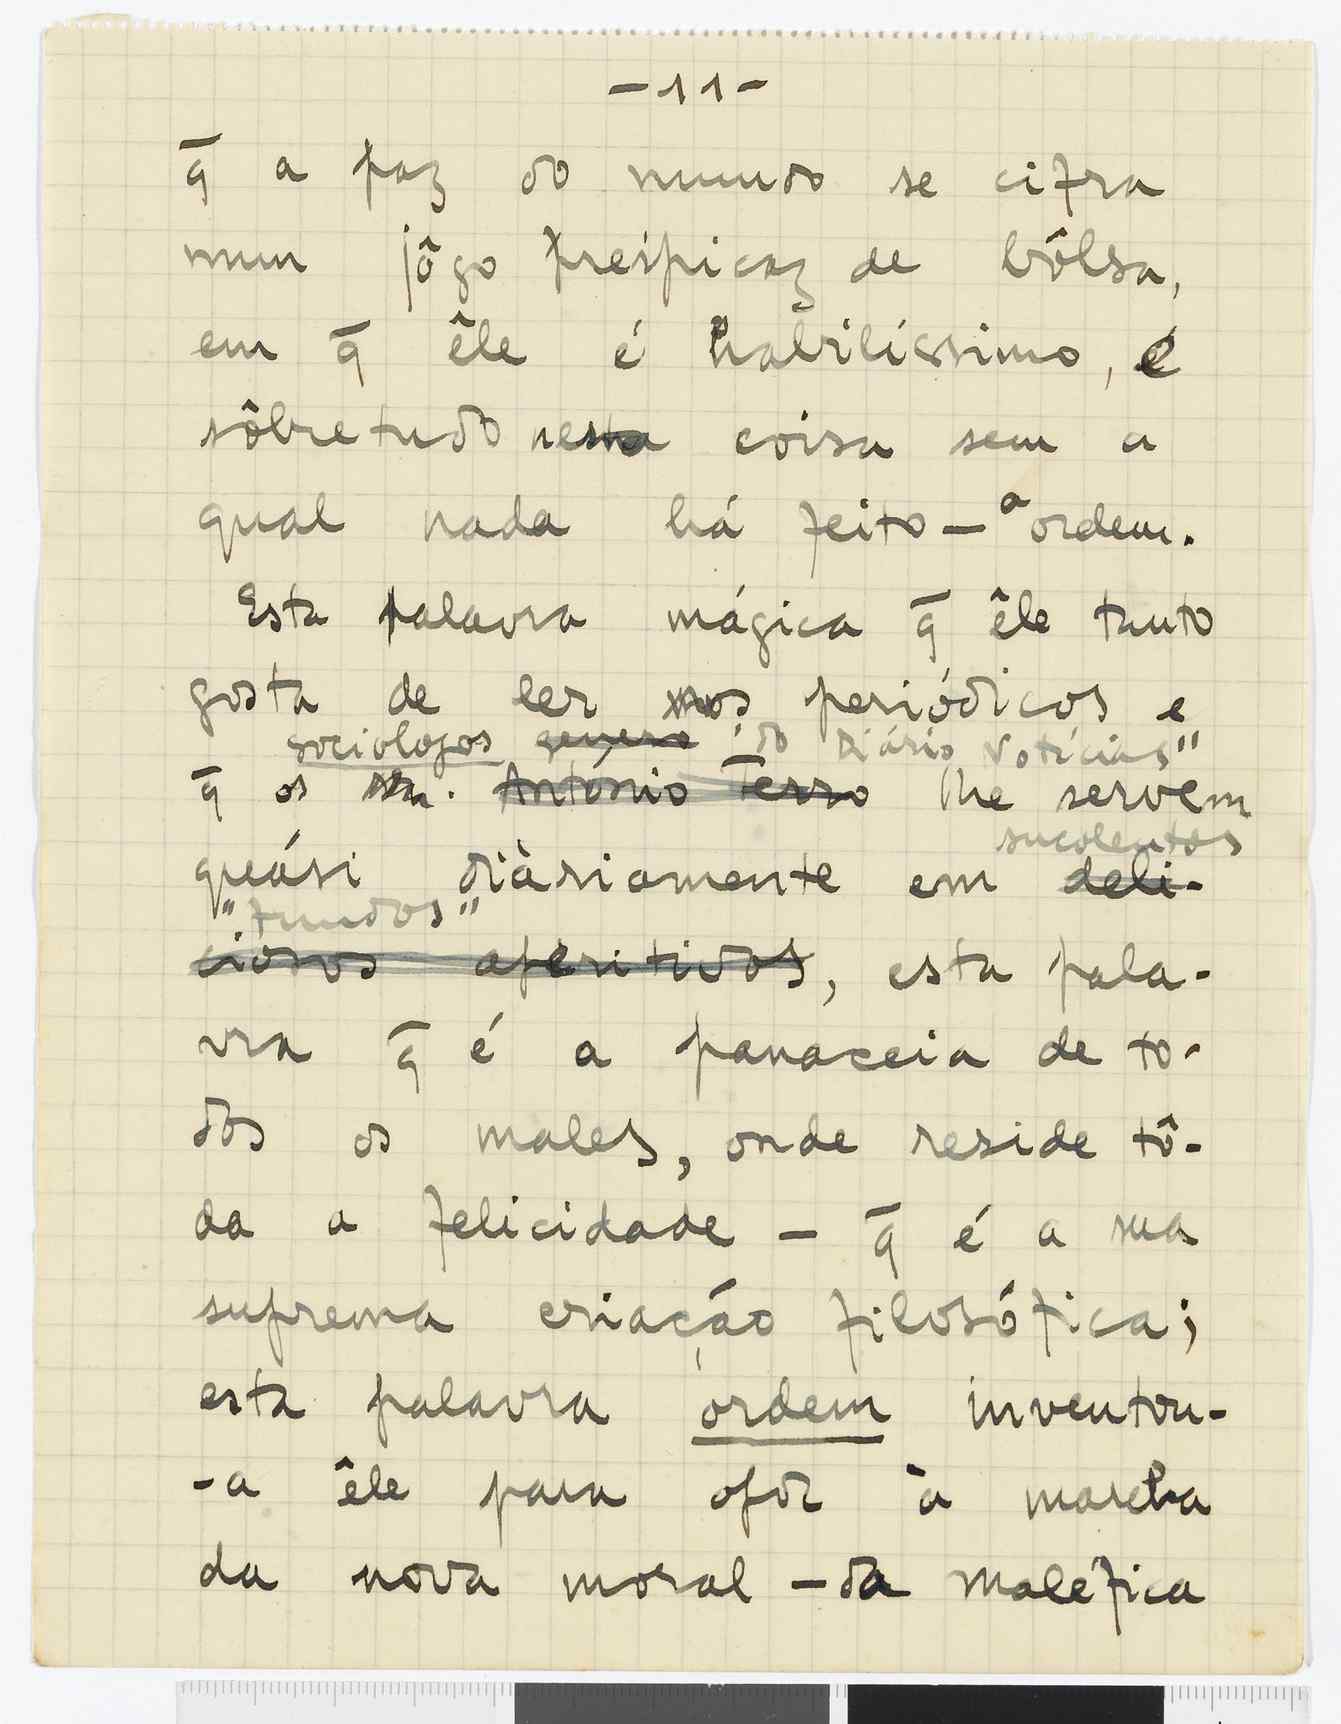 -11-
q̄ a paz do mundo se cifra
num jôgo prespicaz de bôlsa,
em q̄ êle é habilíssimo, e
sôbretudo nesta coisa sem a
qual nada há feito — a ordem.
Esta palavra mágica q̄ êle tanto
gosta de ler nos periódicos e
sociologos genero do Diário Notícias"
q̄ os António Ferro lhe servem
suculentos
quási diàriamente em deli-
"fundos"
ciosos aperitivos, esta pala-
vra q̄ é a panaceia de to-
dos os males, onde reside tô-
da a felicidade — q̄ é a sua
suprema criação filosófica;
esta palavra ordem inventou-
-a êle para opôr à marcha
da nova moral — da maléfica